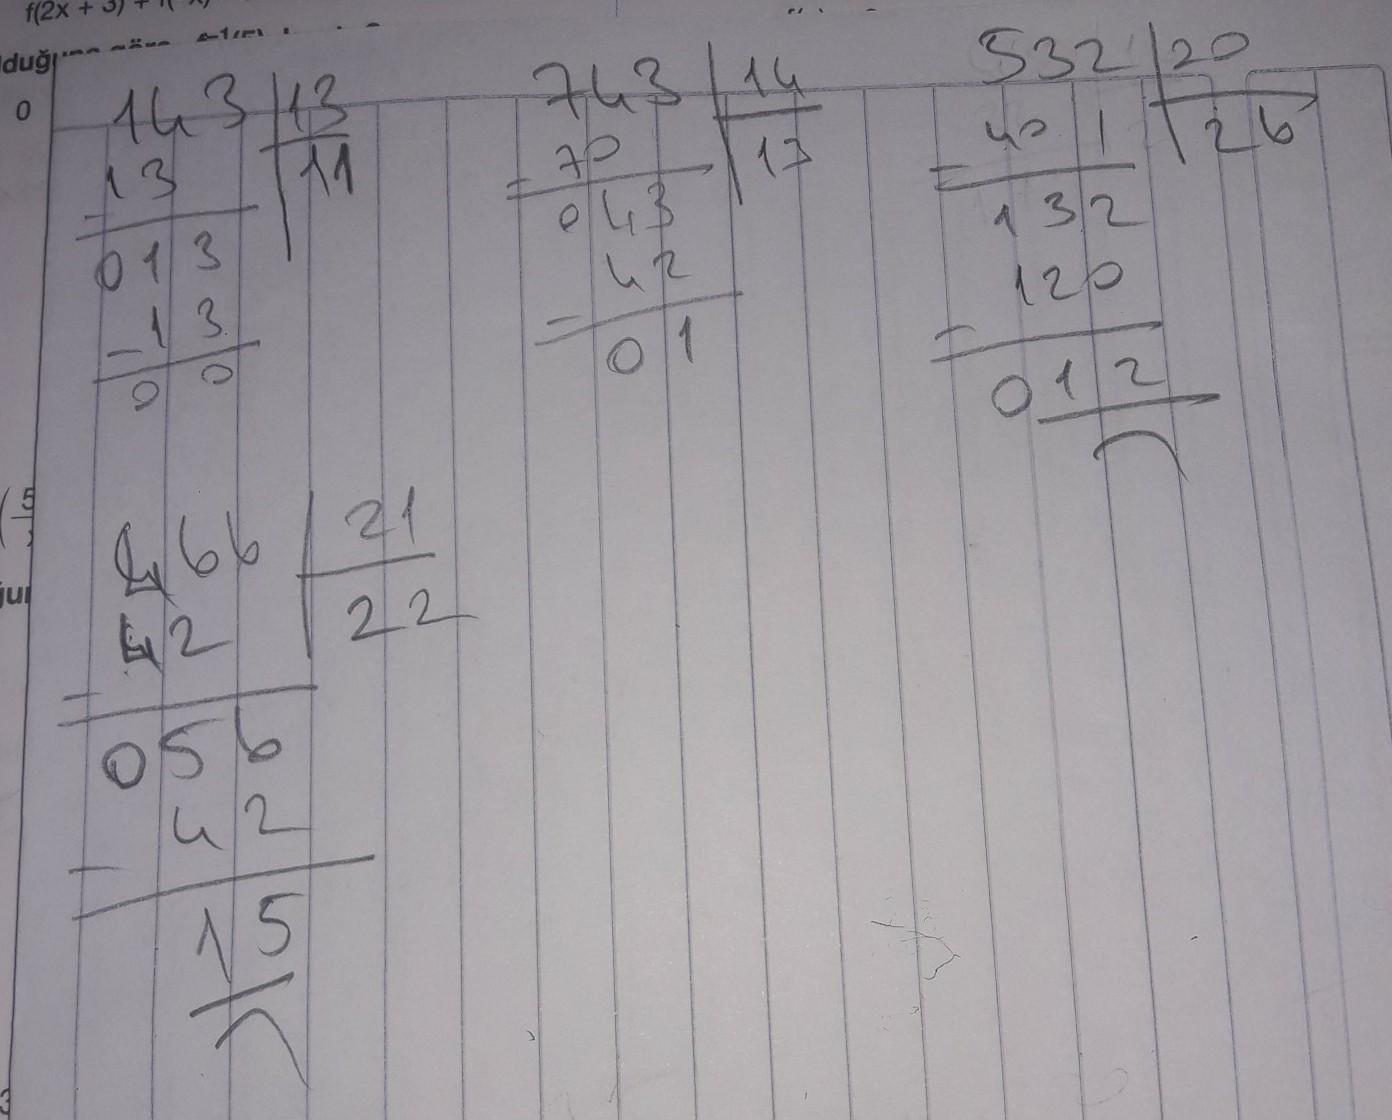 f(2x + 3) +
lduğuna göre,
0
143 | 13
13 | 11
013
-13
0 0
743 | 14
70
043
42
01
532 | 20
40 | 26
132
120
012
466 | 21
42 | 22
056
42
15
5
3